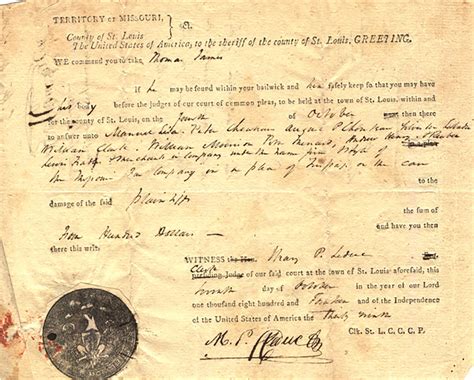 TERRITORY OF MISSOURI,
County of St. Louis
The United States of America, to the sheriff of the county of St. Louis, GREETING.
WE command you to take, Thomas James
If he may be found within your bailiwick and him safely keep so that you may have
his body before the judges of our court of common pleas, to be held at the town of St. Louis, within and
for the county of St. Louis, on the fourth of October then there
to answer unto Manuel Lisa Auguste P Chouteau
William Clark William Morrison Menard, Andrew Henry
Lewis Merchants in Company under the name firm style of
the Missouri Fur Company in a plea of Trespass on the case
to the
damage of the said plaintiffs the sum of
Hundred Dollars and have you then
there this writ.
WITNESS the Hon. Mary P. Leduc
Clerk presiding Judge of our said court at the town of St. Louis aforesaid, this
day of October in the year of our Lord
one thousand eight hundred and fourteen and of the Independence
of the United States of America the thirty ninth
M. P. Leduc
Clk. St. L. C. C. C. P.